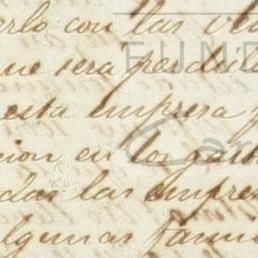 erlo con las
que sera
esta empresa
cion en los gast
das las empre
algunas famil
FUND